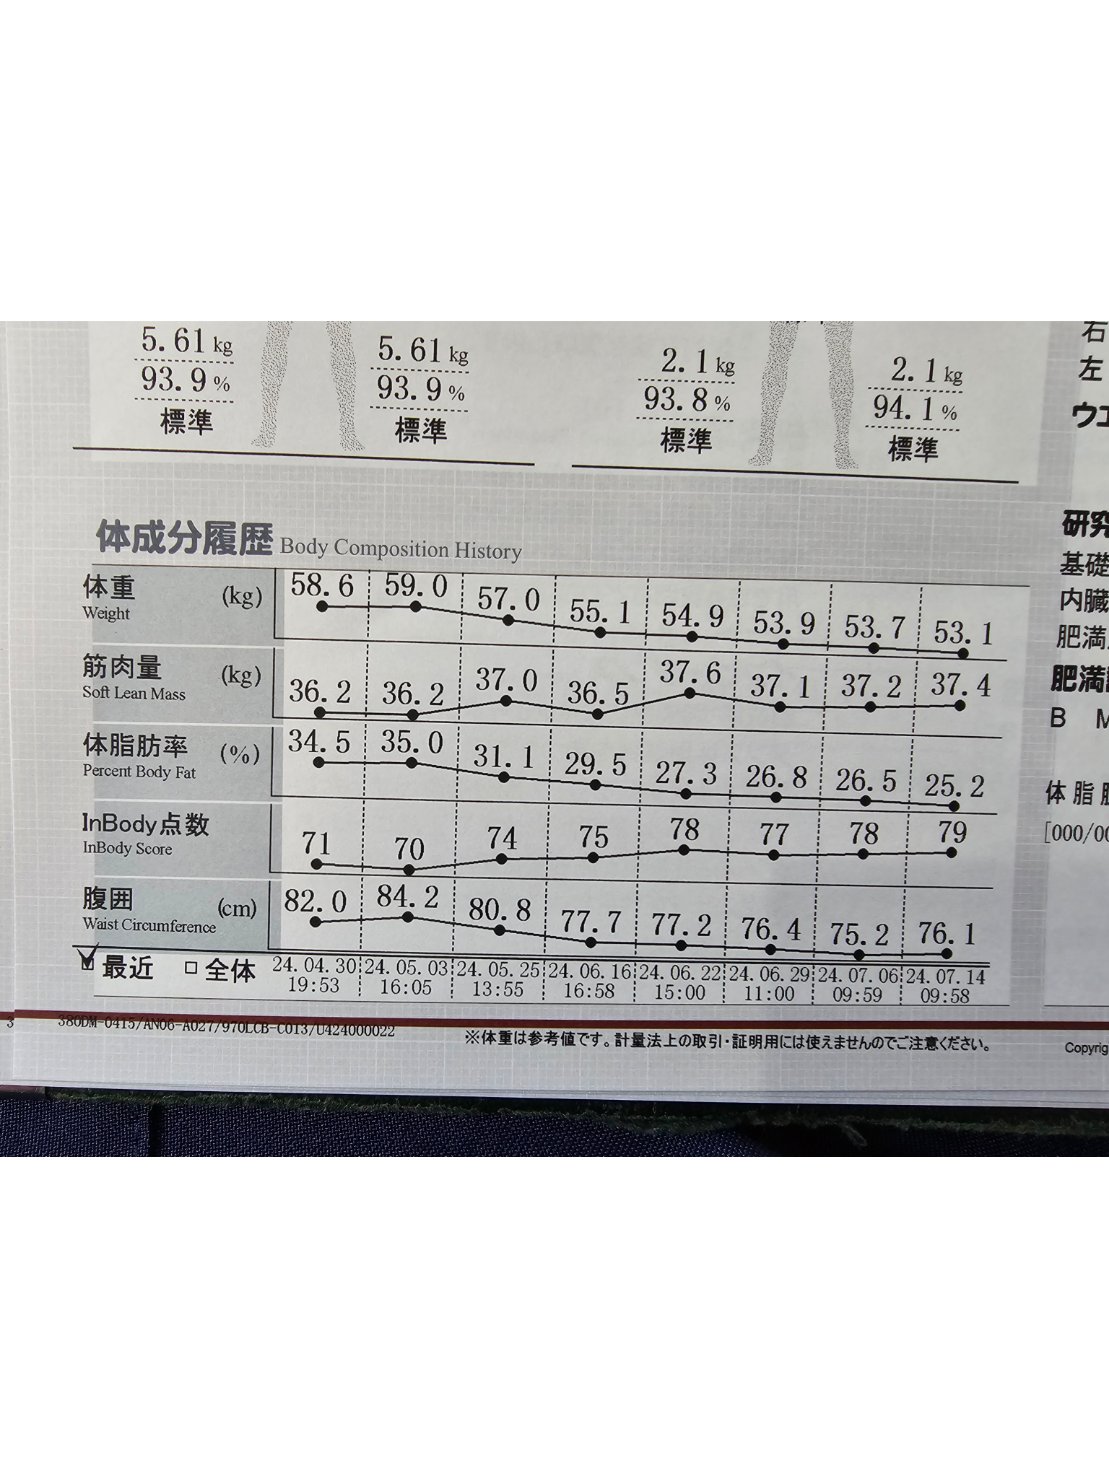 5.61 kg 5.61 kg 2.1 kg 2.1 kg
93.9 % 93.9 % 93.8 % 94.1 %
標準 標準 標準 標準
右
左
体成分履歴 Body Composition History
体重 (kg) 58.6 59.0 57.0 55.1 54.9 53.9 53.7 53.1
Weight
筋肉量 (kg) 36.2 36.2 37.0 36.5 37.6 37.1 37.2 37.4
Soft Lean Mass
体脂肪率 (%) 34.5 35.0 31.1 29.5 27.3 26.8 26.5 25.2
Percent Body Fat
InBody点数 71 70 74 75 78 77 78 79
InBody Score
腹囲 (cm) 82.0 84.2 80.8 77.7 77.2 76.4 75.2 76.1
Waist Circumference
最近 全体 24.04.30 24.05.03 24.05.25 24.06.16 24.06.22 24.06.29 24.07.06 24.07.14
19:53 16:05 13:55 16:58 15:00 11:00 09:59 09:58
研究
基礎
内臓
肥満
B M
体脂
[000/00
3
380DM-0415/AN06-A027/970LCB-C013/U424000022
※体重は参考値です。計量法上の取引・証明用には使えませんのでご注意ください。
Copyrig